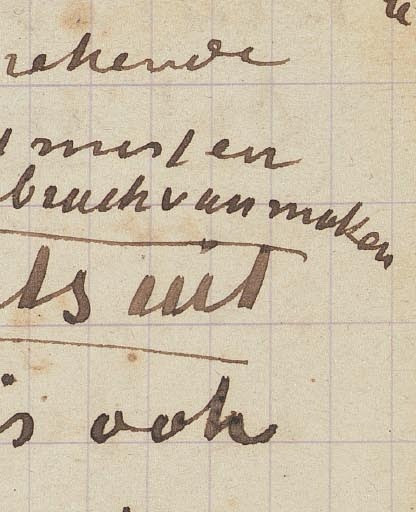 te
rekende
mesten
bruik van maken
ts uit
is ook